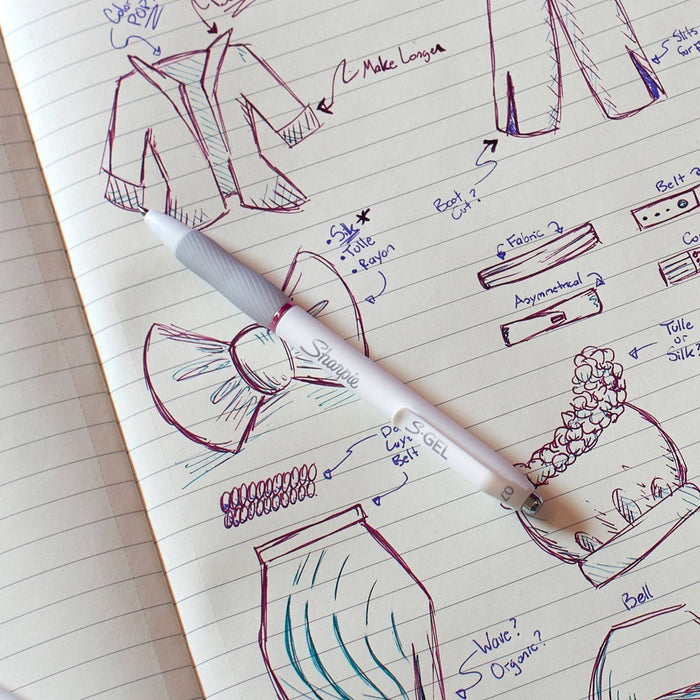 Color
POP
Make Longer
Slits
for
Boot
Cut?
Belt
• Silk *
• Tulle
• Rayon
Fabric
Asymmetrical
Tulle
or
Silk?
Sharpie
S·GEL
0.7
Belt
Bell
Wave?
Organic?